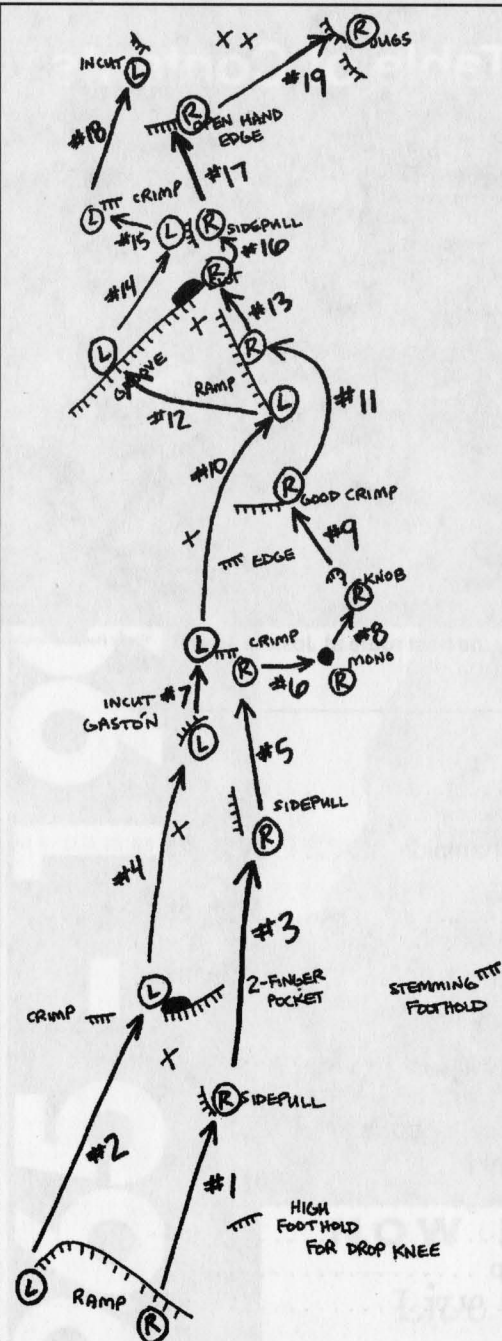 X X
R
JUGS
INCUT
L
#19
R
OPEN HAND
EDGE
#18
#17
L
CRIMP
#15
L
R
SIDEPULL
#16
#14
R
#13
X
L
GROOVE
R
RAMP
#12
L
#11
#10
R
GOOD CRIMP
X
#9
EDGE
R
KNOB
#8
L
CRIMP
R
#6
MONO
R
#7
INCUT
GASTON
L
#5
X
SIDEPULL
R
#4
#3
L
2-FINGER
POCKET
STEMMING
FOOTHOLD
CRIMP
X
R
SIDEPULL
#2
#1
HIGH
FOOTHOLD
FOR DROP KNEE
L
RAMP
R